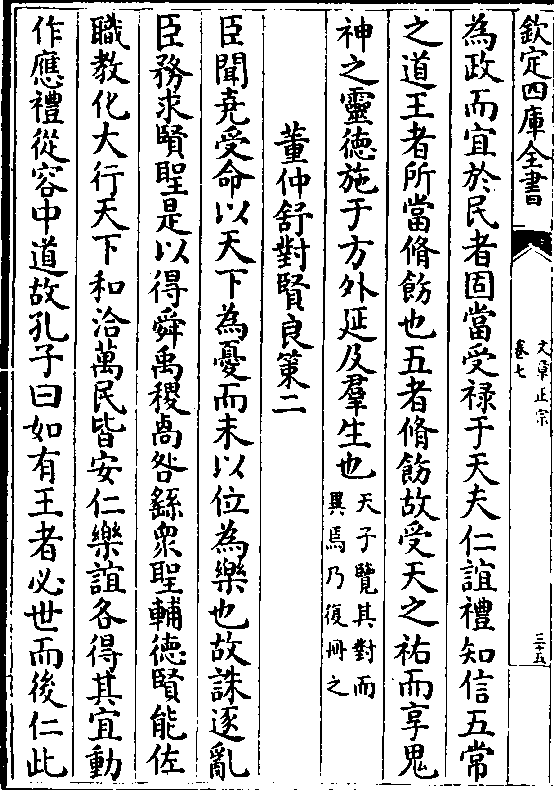 欽定四庫全書
文章正宗
卷七
三十五
為政而宜於民者固當受祿于天夫仁誼禮知信五常
之道王者所當脩飭也五者脩飭故受天之祐而享鬼
神之靈德施于方外延及羣生也天子覽其對而
異焉乃復冊之
董仲舒對賢良策二
臣聞堯受命以天下為憂而未以位為樂也故誅逐亂
臣務求賢聖是以得舜禹稷卨咎繇衆聖輔德賢能佐
職教化大行天下和洽萬民皆安仁樂誼各得其宜動
作應禮從容中道故孔子曰如有王者必世而後仁此